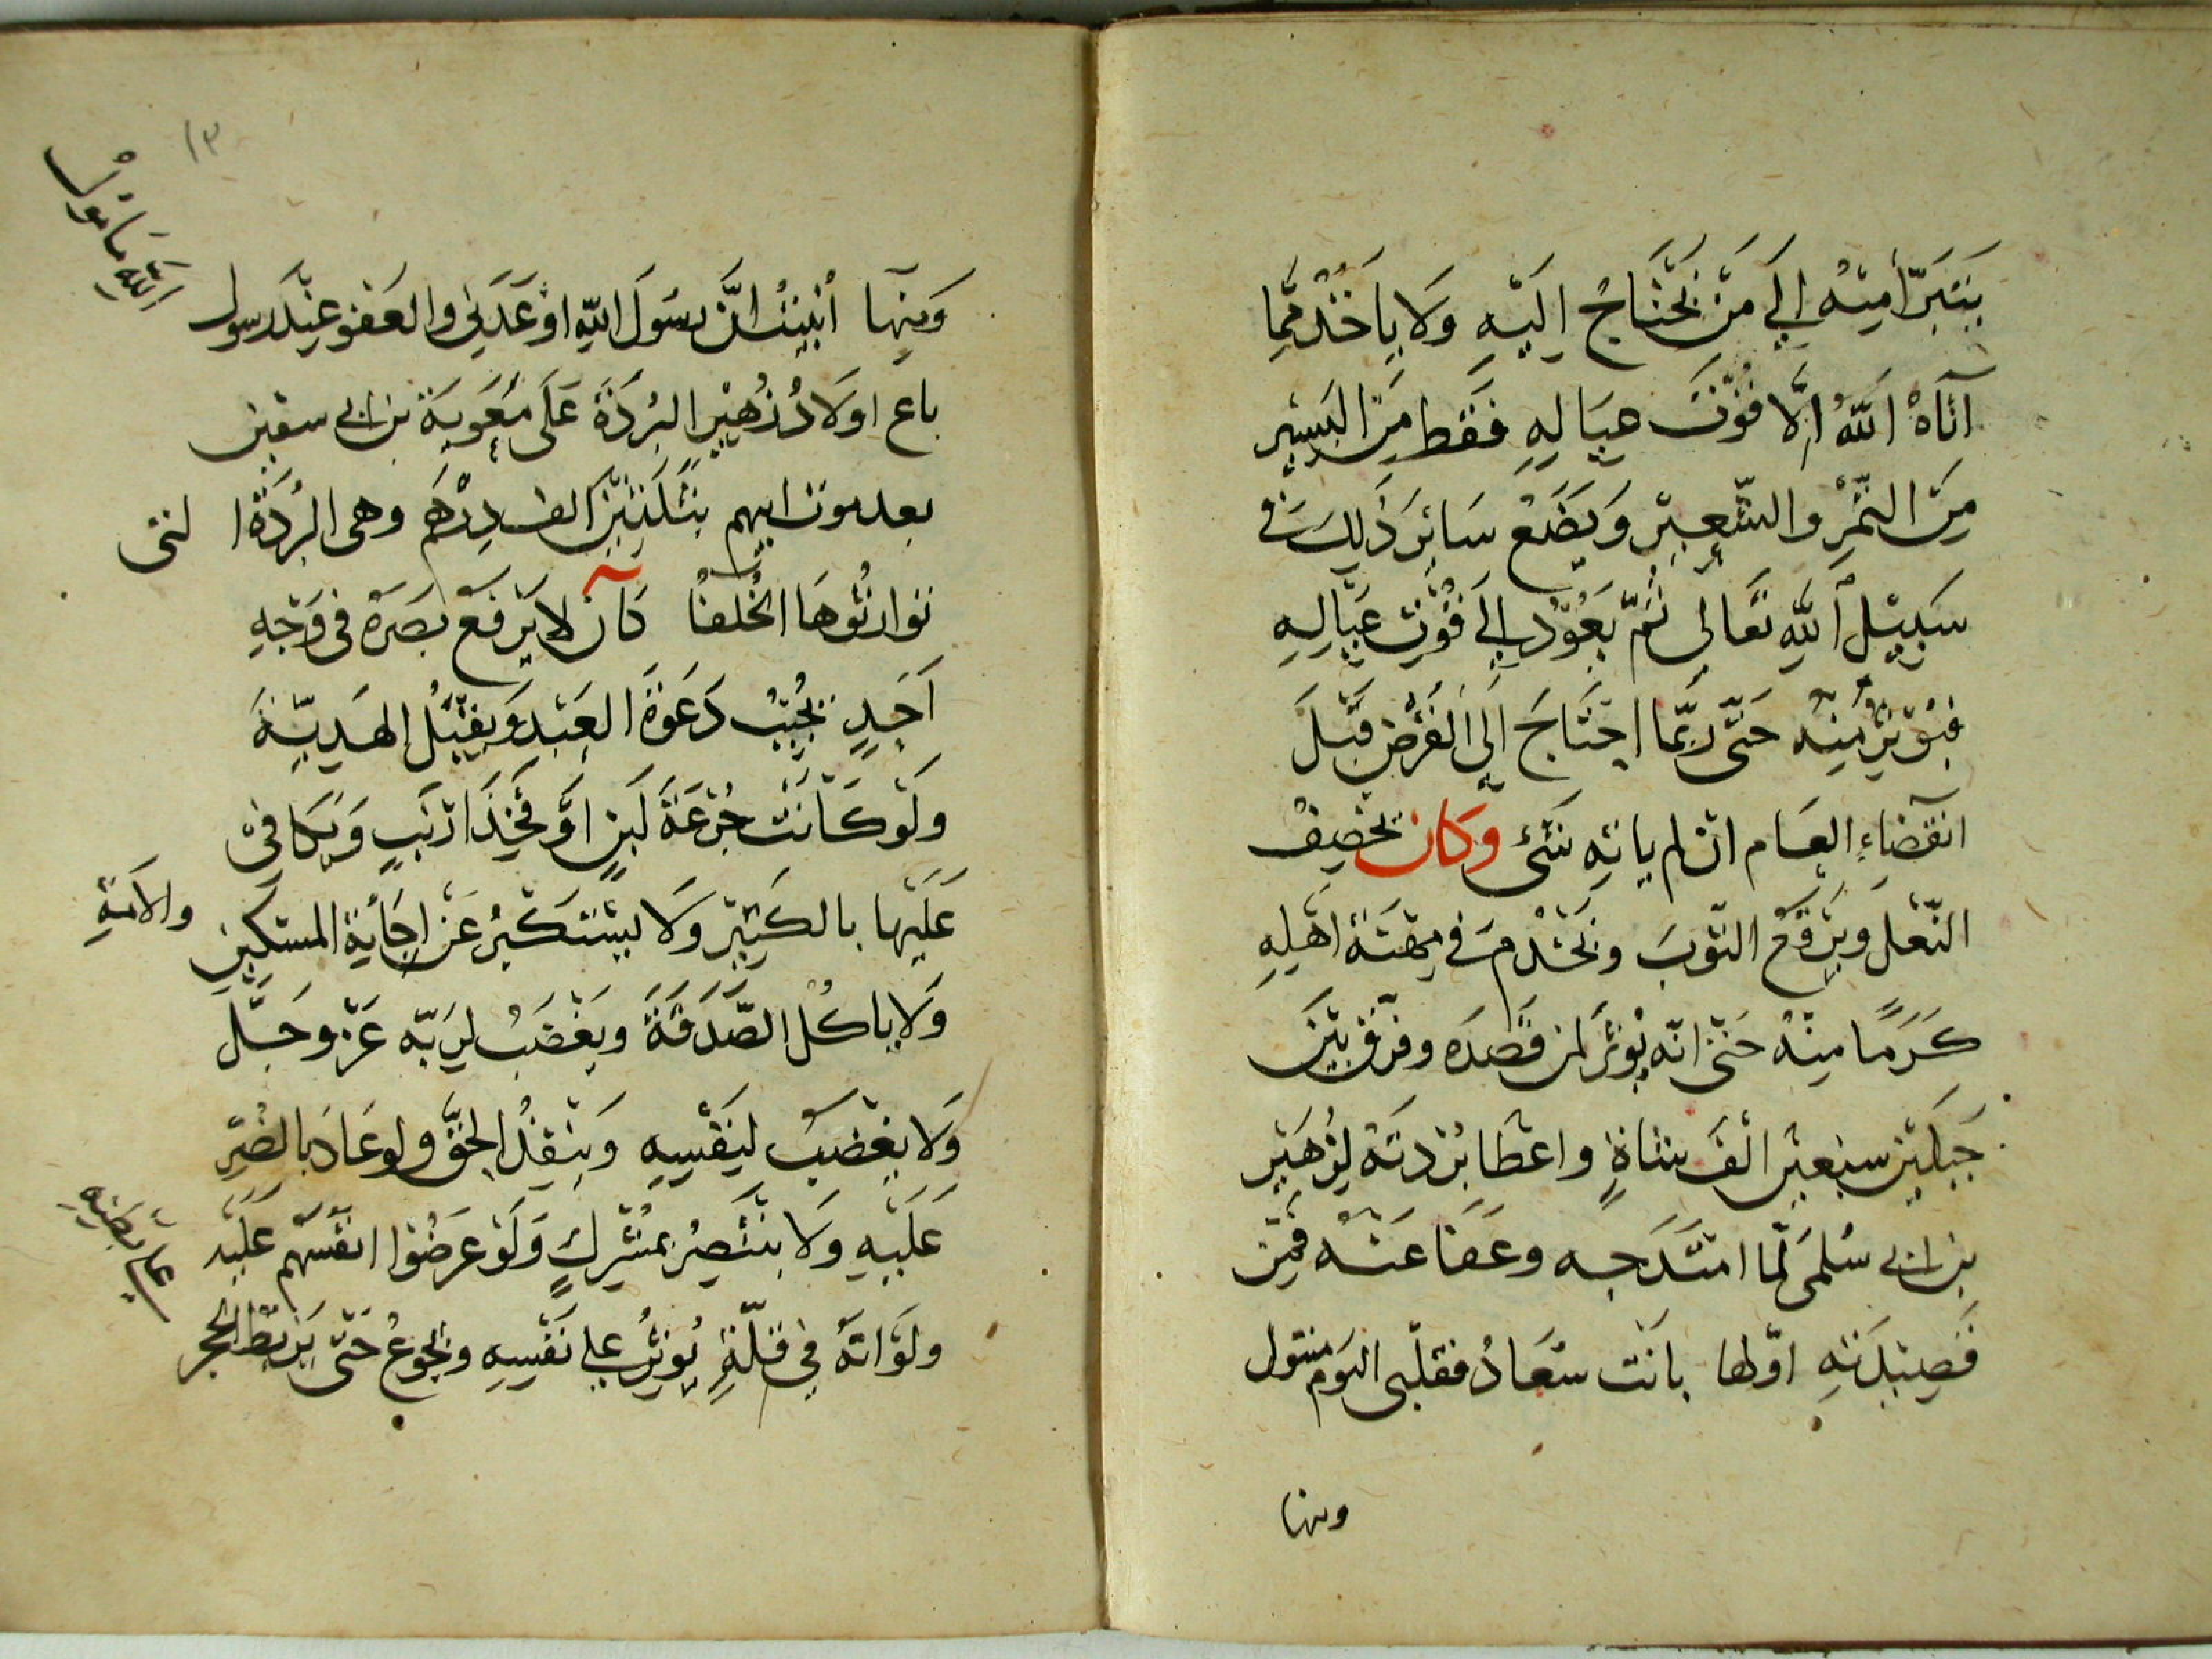 يَتَبَرَّأ مِنْهُ إِلَى مَنْ يَحْتَاجُ إِلَيْهِ وَلَا يَاخُذُ مِمَّا
آتَاهُ اللَّهُ إِلَّا قُوْتَ عِيَالِهِ فَقَط مِنَ اليَسِيْرِ
مِنَ التَّمْرِ وَالشَّعِيْرِ وَيَضَعُ سَائِرَ ذَلِكَ فِي
سَبِيْلِ اللَّهِ تَعَالَى ثُمَّ يَعُوْدُ إِلَى قُوْتِ عِيَالِهِ
فَيُؤْثِرُ مِنْهُ حَتَّى رُبَّمَا احْتَاجَ إِلَى القَرْضِ قَبْلَ
انْقِضَاءِ العَام ان لم ياتِهِ شَئ وَكَان يَخْصِفُ
النَّعْلَ وَيَرْقَعُ الثَّوبَ وَيَخْدُمُ فِي مِهْنَة أَهْلِهِ
كَرَمًا مِنْهُ حَتَّى انّه يُؤثِرُ لمن قَصَدَه وفرّق بَيْنَ
جَبَلَيْنِ سَبْعِيْنَ الْفَ شَاةٍ واعْطَا بُرْدَتَهُ لِزُهَيْرِ
بن ابى سُلْمَى لمَّا امْتَدَحَه وعَفَا عَنْه فَمِن
قَصِيْدَتِهِ اوّلها بَانَت سُعَادُ فقلبى اليَوم متبول
ومنها
١٣
وَمِنْهَا أُنْبِئْتُ انَّ رَسُولَ اللهِ اوْعَدَنِي والعَفْو عِنْدَ رسول
اللهِ مَامُوْلُ
باع اولَادُ زُهَيْرِ البُرْدَةَ عَلَى مُعَوِيَة بن ابى سفين
بعد موت ابيهم بِثَلَثِيْنَ الف دِرْهَم وهى البُرْدَةُ التى
توارثُوهَا الخُلفا كَان لا يَرْفَعُ بَصَرَهُ فى وَجْهِ
أَحَدٍ يُجِيْبُ دَعْوَةَ العَبْدِ وَيَقْبَلُ الهَدِيَّةَ
وَلَوْ كَانَتْ جُرْعَةَ لَبَنٍ اوْ فَخِذَ ارْنَبٍ وَيُكَافِئ
عَلَيْها بالكَثِيْرِ وَلَا يَسْتَكْبِرُ عَنْ إِجَابَةِ المِسْكِيْنِ والامَةِ
وَلَا ياكُل الصَّدَقَةَ وَيَغْضَبُ لِرَبِّهِ عَزّ وَجَلَّ
وَلَا يَغْضَبُ لِنَفْسِهِ وَيُنْفِذُ الحَقَّ ولو عَادَ بِالضُرِّ
عَلَيْهِ وَلَا يَنْتَصِرُ بِمُشْرِكٍ وَلَوْ عَرَضُوا انْفُسَهُمْ عَلَيْهِ
وَلَوْ انَّهُ فِي قِلَّةٍ يُوثِرُ عَلَى نَفْسِهِ وَيَجُوعُ حَتَّى يَرْبِطَ الحَجر
عَلَى بَطْنِهِ